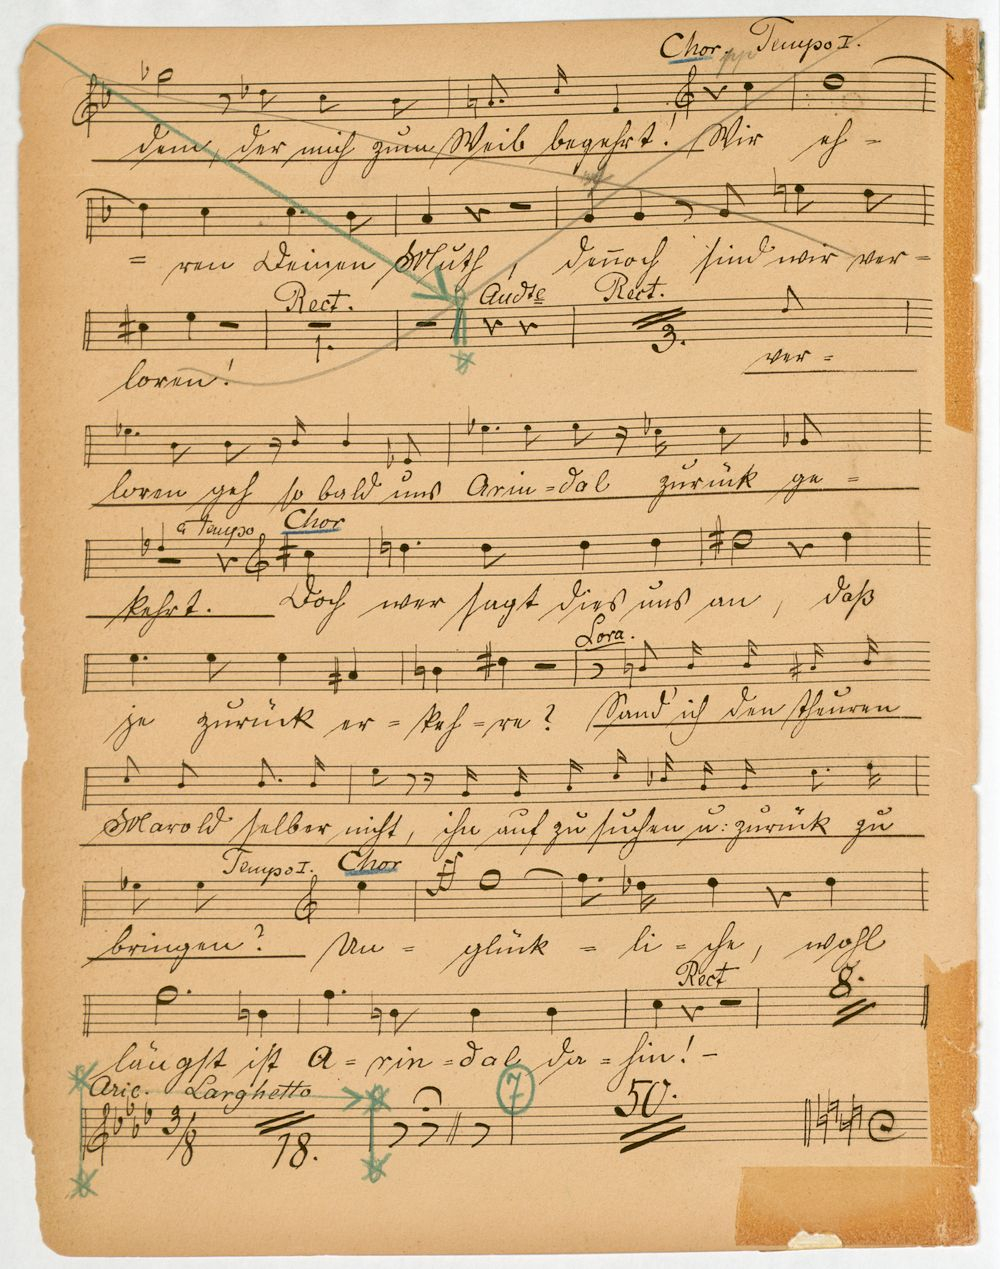 Chor. pp Tempo I.
dem, der mich zum Weib begehrt! Wir eh =
= ren Deinen Muth, dennoch sind wir ver =
Rect. Andte Rect.
1. 3.
loren! ver =
loren geh so bald uns Arin = dal zurück ge =
a Tempo Chor
kehrt. Doch wer sagt dies uns an, daß
Lora.
je zurück er = keh = re? Sand ich den theuren
Marold selber nicht, ihn auf zu suchen u: zurück zu
Tempo I. Chor
bringen? Un = glück = li = che, wohl
Rect 8.
längst ist A = rin = dal da = hin! –
Arie. Larghetto 7 50.
3/8 18.